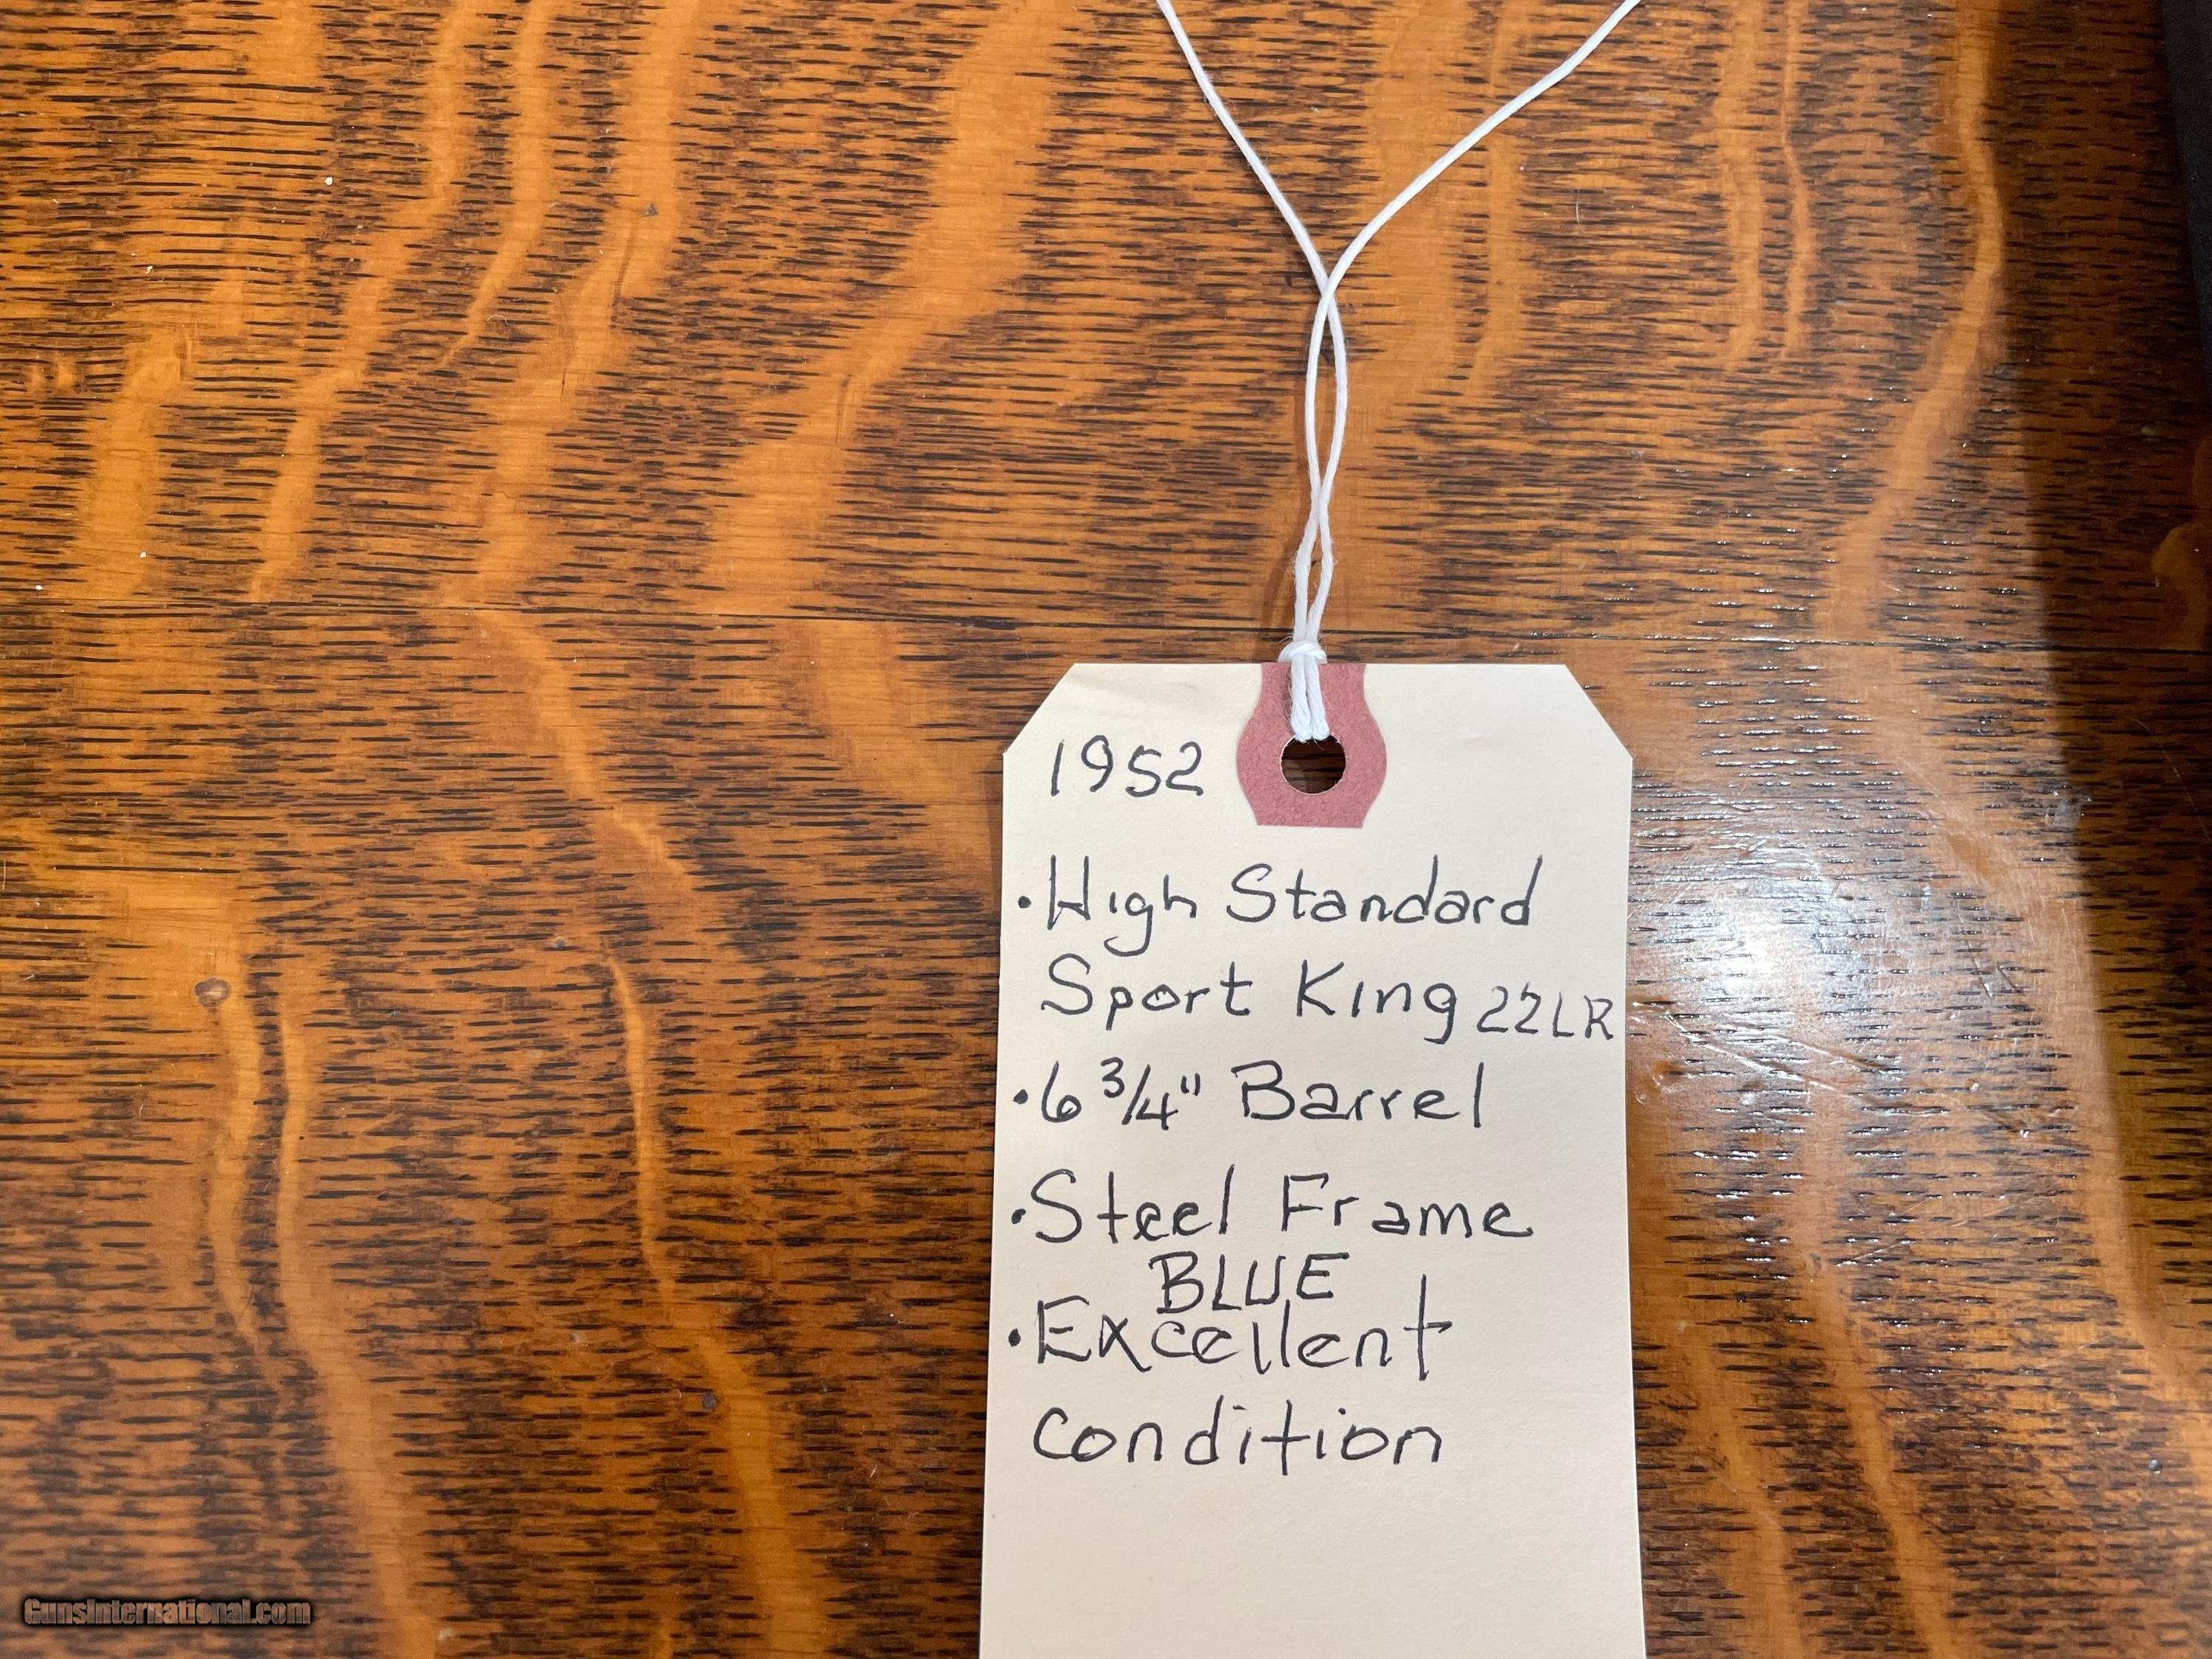 1952
• High Standard
Sport King 22LR
• 6 3/4" Barrel
• Steel Frame
BLUE
• Excellent
condition
GunsInternational.com